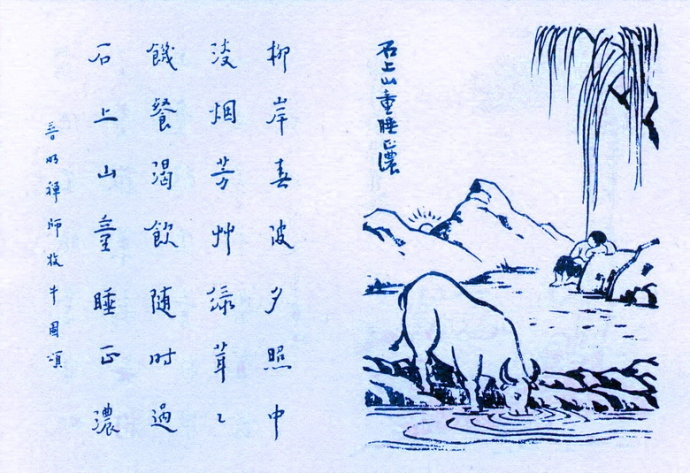 石上山童睡正濃
柳岸春波夕照中
淡烟芳艸綠茸〻
饑餐渴飲随时過
石上山童睡正濃
普明禪師牧牛圖頌